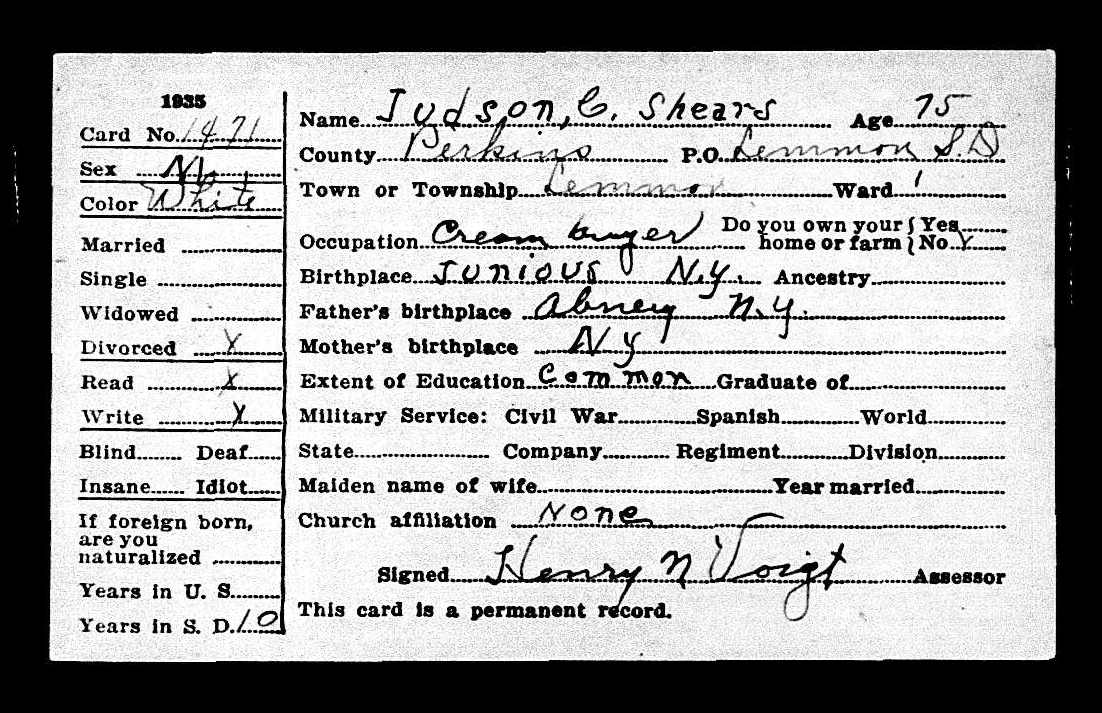 1935
Card No. 1471
Sex M
Color White
Married
Single
Widowed
Divorced X
Read X
Write X
Blind Deaf
Insane Idiot
If foreign born,
are you
naturalized
Years in U. S.
Years in S. D. 10
Name Judson, C. Shears Age 75
County Perkins P.O. Lemmon S.D
Town or Township Lemmon Ward 1
Occupation Cream buyer Do you own your { Yes
home or farm { No X
Birthplace Junious N.Y. Ancestry
Father's birthplace N.Y.
Mother's birthplace NY
Extent of Education Common Graduate of
Military Service: Civil War Spanish World
State Company Regiment Division
Maiden name of wife Year married
Church affiliation None
Signed Henry N Voigt Assessor
This card is a permanent record.